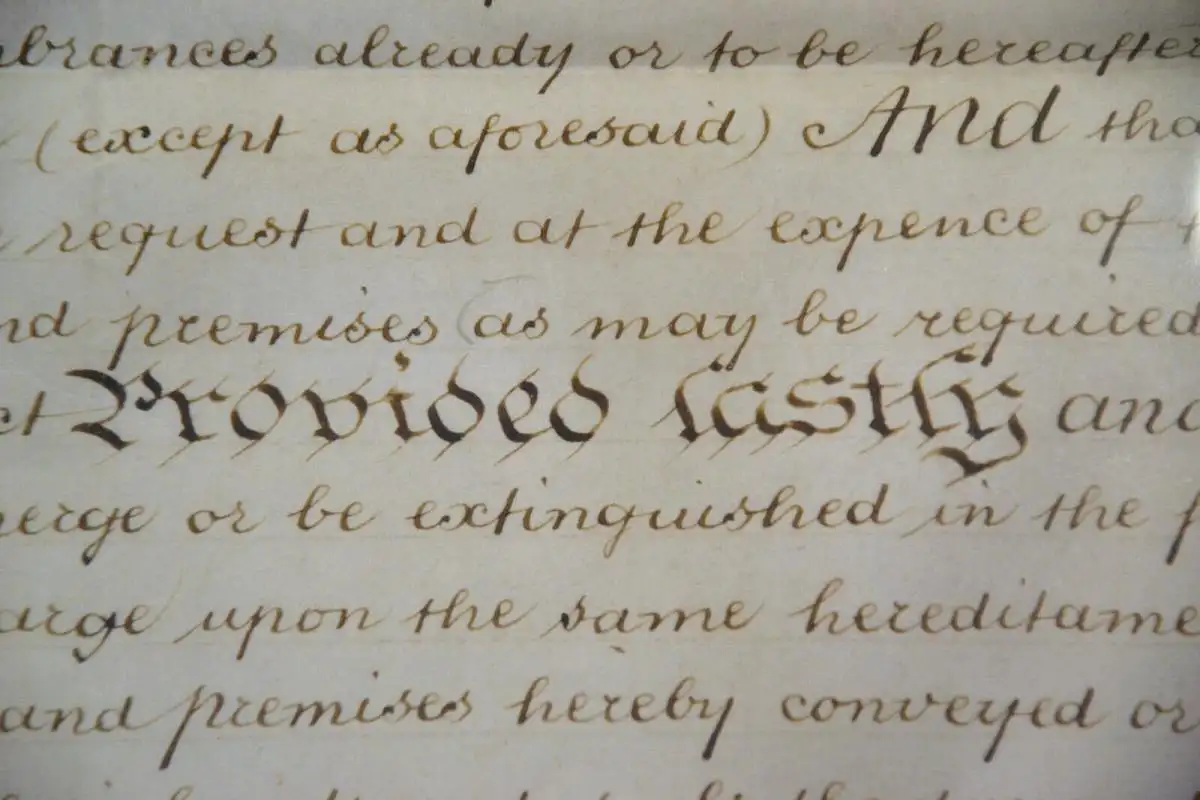 brances already or to be hereafter
(except as aforesaid) And tha
request and at the expence of
nd premises (as may be required
ct Provided lastly and
erge or be extinguished in the f
arge upon the same heredita­me
and premises hereby conveyed or